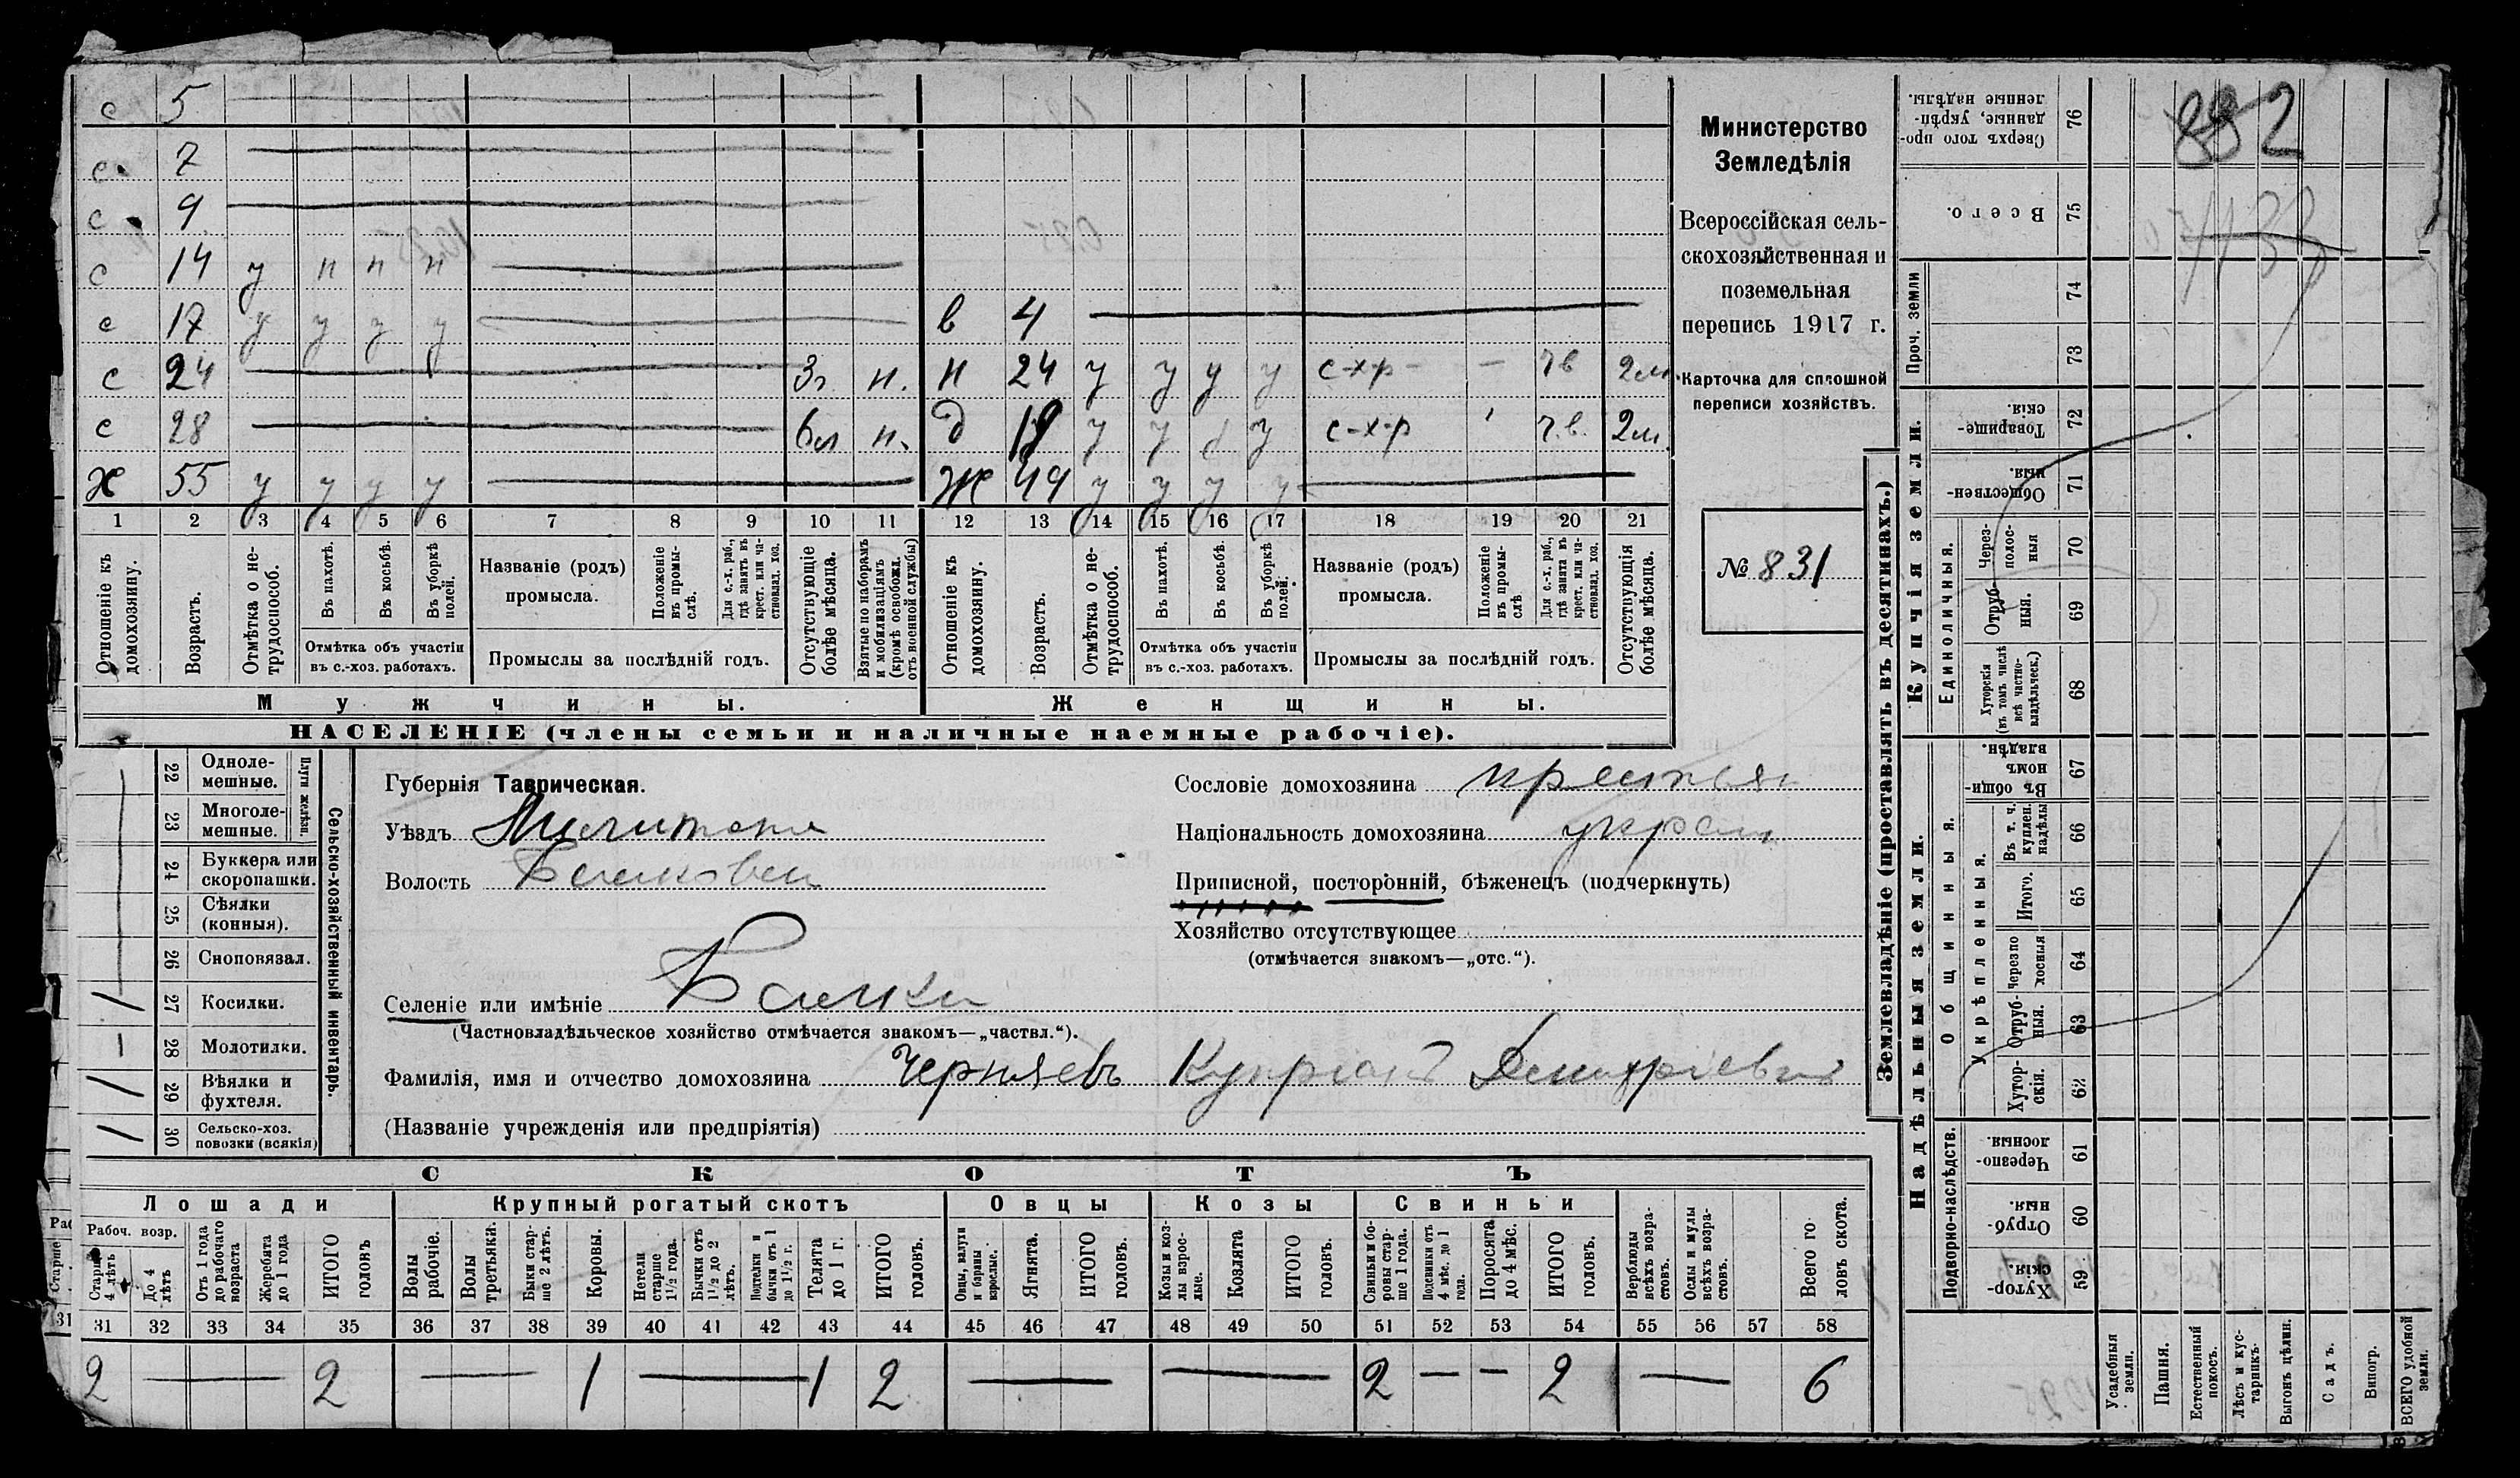 с 5
с 7
с 9
с 14 у н н н
с 17 у у у у в 4
с 24 3г. н. н 24 у у у у с-х-р - - чв 2м
с 28 6м н. д у у у с-х-р ч.в. 2м.
х 55 у у у у ж 44 у у у у
1 2 3 4 5 6 7 8 9 10 11 12 13 14 15 16 17 18 19 20 21
Отношеніе къ домохозяину.
Возрастъ.
Отмѣтка о не-трудоспособ.
Въ пахотѣ.
Въ косьбѣ.
Въ уборкѣ полей.
Отмѣтка объ участіи
въ с.-хоз. работахъ.
Названіе (родъ)
промысла.
Положеніе въ промы-слѣ.
Для с.-х. раб., гдѣ занятъ въ крест. или ча-стновлад. хоз.
Промыслы за послѣдній годъ.
Отсутствующіе болѣе мѣсяца.
Взятые по наборамъ и мобилизаціямъ (кромѣ освобожд. отъ военной службы)
Отношеніе къ домохозяину.
Возрастъ.
Отмѣтка о не-трудоспособ.
Въ пахотѣ.
Въ косьбѣ.
Въ уборкѣ полей.
Отмѣтка объ участіи
въ с.-хоз. работахъ.
Названіе (родъ)
промысла.
Положеніе въ промы-слѣ
Для с.-х. раб., гдѣ занята въ крест. или ча-стновлад. хоз.
Промыслы за послѣдній годъ.
Отсутствующія болѣе мѣсяца.
Мужчины. Женщины.
НАСЕЛЕНІЕ (члены семьи и наличные наемные рабочіе).
Министерство
Земледѣлія
Всероссійская сель-
скохозяйственная и
поземельная
перепись 1917 г.
Карточка для сплошной
переписи хозяйствъ.
№ 831
22 Одноле-мешные.
23 Многоле-мешные.
Плуги желѣзн.
24 Буккера или скоропашки.
25 Сѣялки (конныя).
26 Сноповязал.
27 Косилки. /
28 Молотилки. -
29 Вѣялки и фухтеля. /
30 Сельско-хоз. повозки (всякія) /
Сельско-хозяйственный инвентарь.
Губернія Таврическая.
Уѣздъ
Волость
Селеніе или имѣніе Балки
(Частновладѣльческое хозяйство отмѣчается знакомъ—„частвл.“).
Фамилія, имя и отчество домохозяина Черняевъ Купріанъ Дмитріевичъ
(Названіе учрежденія или предпріятія)
Сословіе домохозяина крестьян
Національность домохозяина украин
Приписной, посторонній, бѣженецъ (подчеркнуть)
Хозяйство отсутствующее
(отмѣчается знакомъ—„отс.“).
СКОТЪ
Лошади Крупный рогатый скотъ Овцы Козы Свиньи
Рабоч. возр.
Старше 4 лѣтъ
До 4 лѣтъ
Отъ 1 года до рабочаго возраста
Жеребята до 1 года
ИТОГО головъ
Волы рабочіе.
Волы третьяки.
Быки стар-ше 2 лѣтъ.
Коровы.
Нетели старше 1½ года.
Бычки отъ 1½ до 2 лѣтъ.
Подтелки и бычки отъ 1 до 1½ г.
Телята до 1 г.
ИТОГО головъ.
Овцы, валухи и бараны взрослые.
Ягнята.
ИТОГО головъ.
Козы и коз-лы взрос-лые.
Козлята
ИТОГО головъ.
Свиньи и бо-ровы стар-ше 1 года.
Подсвинки отъ 4 мѣс. до 1 года.
Поросята до 4 мѣс.
ИТОГО головъ.
Верблюды всѣхъ возра-стовъ.
Ослы и мулы всѣхъ возра-стовъ.
Всего го-ловъ скота.
31 32 33 34 35 36 37 38 39 40 41 42 43 44 45 46 47 48 49 50 51 52 53 54 55 56 57 58
2 — 2 — 1 — 1 2 — — 2 — — 2 — 6
Землевладѣніе (проставлять въ десятинахъ.)
Купчія земли.
Надѣльныя земли.
Проч. земли
76 Сверхъ того про-данные, укрѣп-ленные надѣлы.
75 Всего.
74
73
72 Товарище-скія.
71 Обществен-ныя.
Единоличныя.
70 Через-полос-ныя
69 Отруб-ныя.
68 Хуторскія (въ томъ числѣ всѣ частно-владѣльческ.)
67 Въ общи-номъ владѣн.
Общинныя.
Укрѣпленныя.
66 Въ т. ч. куплен. надѣлы
65 Итого.
64 Черезпо-лосныя
63 Отруб-ныя.
62 Хутор-скія.
Подворно-наслѣдств.
61 Черезпо-лосныя
60 Отруб-ныя
59 Хутор-скія.
Усадебныя земли.
Пашня.
Естественный покосъ.
Лѣсъ и кус-тарникъ.
Выгонъ цѣлин.
Садъ.
Виногр.
ВСЕГО удобной земли.
882